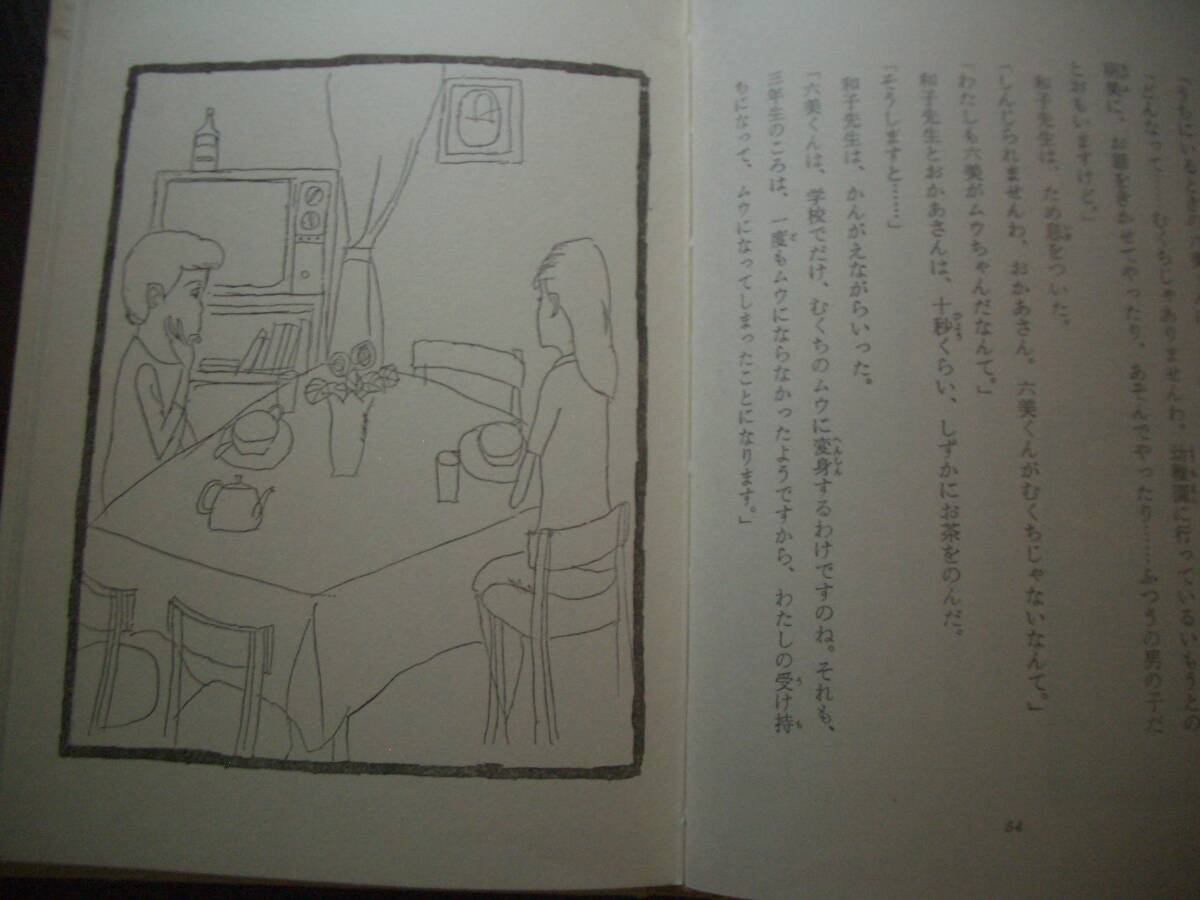 「うちにいるときの
「どんなって……むくちじゃありませんわ。幼稚園に行っているいもうとの
に、お話をきかせてやったり、あそんでやったり……ふつうの男の子だ
とおもいますけど。」
和子先生は、ため息をついた。
「しんじられませんわ、おかあさん。六美くんがむくちじゃないなんて。」
「わたしも六美がムウちゃんだなんて。」
和子先生とおかあさんは、十秒くらい、しずかにお茶をのんだ。
「そうしますと……」
和子先生は、かんがえながらいった。
「六美くんは、学校でだけ、むくちのムウに変身するわけですのね。それも、
三年生のころは、一度もムウにならなかったようですから、わたしの受け持
ちになって、ムウになってしまったことになります。」
54